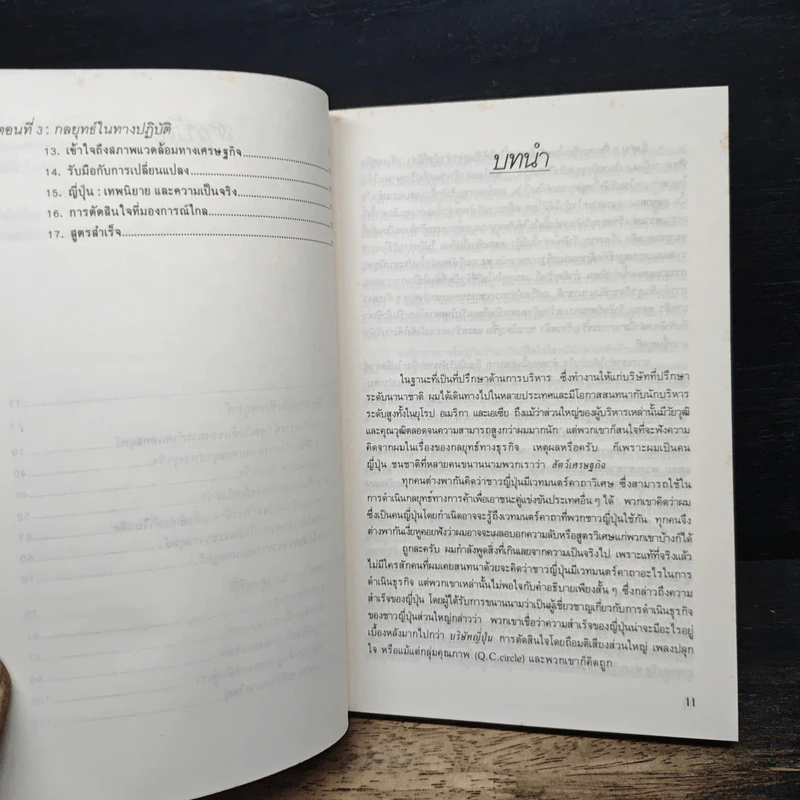 ตอนที่ 3: กลยุทธ์ในทางปฏิบัติ
13. เข้าใจถึงสภาพแวดล้อมทางเศรษฐกิจ
14. รับมือกับการเปลี่ยนแปลง
15. ญี่ปุ่น : เทพนิยาย และความเป็นจริง
16. การตัดสินใจที่มองการณ์ไกล
17. สูตรสำเร็จ
บทนำ
ในฐานะที่เป็นที่ปรึกษาด้านการบริหาร ซึ่งทำงานให้แก่บริษัทที่ปรึกษา
ระดับนานาชาติ ผมได้เดินทางไปในหลายประเทศและมีโอกาสสนทนากับนักบริหาร
ระดับสูงทั้งในยุโรป อเมริกา และเอเซีย ถึงแม้ว่าส่วนใหญ่ของผู้บริหารเหล่านั้นมีวัยวุฒิ
และคุณวุฒิตลอดจนความสามารถสูงกว่าผมมากนัก แต่พวกเขาก็สนใจที่จะฟังความ
คิดจากผมในเรื่องของกลยุทธ์ทางธุรกิจ เหตุผลหรือครับ ก็เพราะผมเป็นคน
ญี่ปุ่น ชนชาติที่หลายคนขนานนามพวกเราว่า สัตว์เศรษฐกิจ
ทุกคนต่างพากันคิดว่าชาวญี่ปุ่นมีเวทมนตร์คาถาวิเศษ ซึ่งสามารถใช้ใน
การดำเนินกลยุทธ์ทางการค้าเพื่อเอาชนะคู่แข่งขันประเทศอื่น ๆ ได้ พวกเขาคิดว่าผม
ซึ่งเป็นคนญี่ปุ่นโดยกำเนิดอาจจะรู้ถึงเวทมนตร์คาถาที่พวกชาวญี่ปุ่นใช้กัน ทุกคนจึง
ต่างพากันเงี่ยหูคอยฟังว่าผมอาจจะเผลอบอกความลับหรือสูตรวิเศษแก่พวกเขาบ้างก็ได้
ถูกละครับ ผมกำลังพูดสิ่งที่เกินเลยจากความเป็นจริงไป เพราะแท้ที่จริงแล้ว
ไม่มีใครสักคนที่ผมเคยสนทนาด้วยจะคิดว่าชาวญี่ปุ่นมีเวทมนตร์คาถาอะไรในการ
ดำเนินธุรกิจ แต่พวกเขาเหล่านั้นไม่พอใจกับคำอธิบายเพียงสั้น ๆ ซึ่งกล่าวถึงความ
สำเร็จของญี่ปุ่น โดยผู้ได้รับการขนานนามว่าเป็นผู้เชี่ยวชาญเกี่ยวกับการดำเนินธุรกิจ
ของชาวญี่ปุ่นส่วนใหญ่กล่าวว่า พวกเขาเชื่อว่าความสำเร็จของญี่ปุ่นน่าจะมีอะไรอยู่
เบื้องหลังมากไปกว่า บริษัทญี่ปุ่น การตัดสินใจโดยถือมติเสียงส่วนใหญ่ เพลงปลุก
ใจ หรือแม้แต่กลุ่มคุณภาพ (Q.C.circle) และพวกเขาก็คิดถูก
11